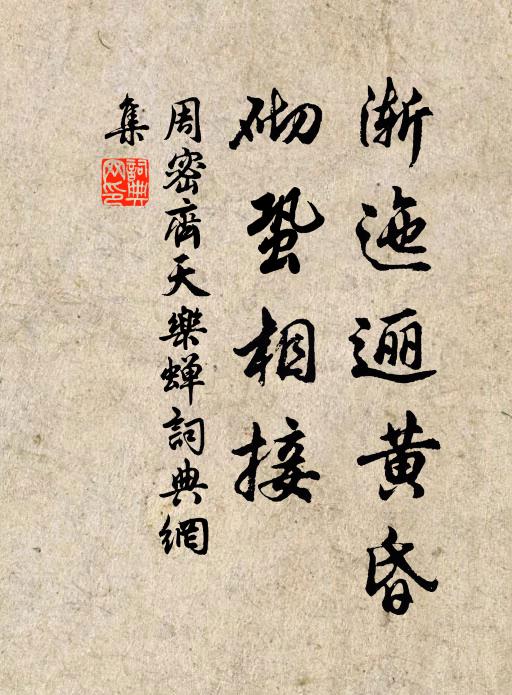 渐迤逦黄昏
砌蛩相接
周密齊天樂蝉詞典網
集
詞典网印